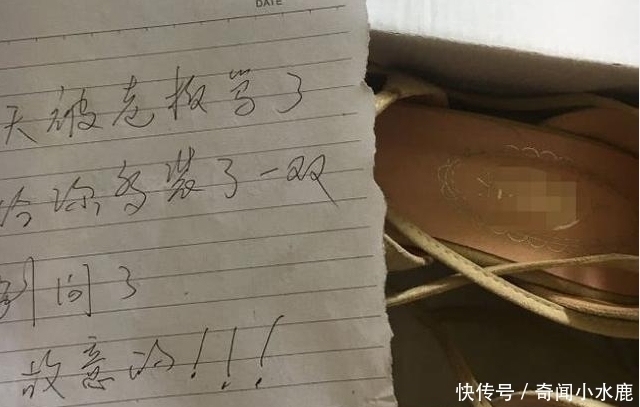 DATE
天被老板骂了
给你多装了一双
别问了
故意的!!!
快传号/奇闻小水鹿